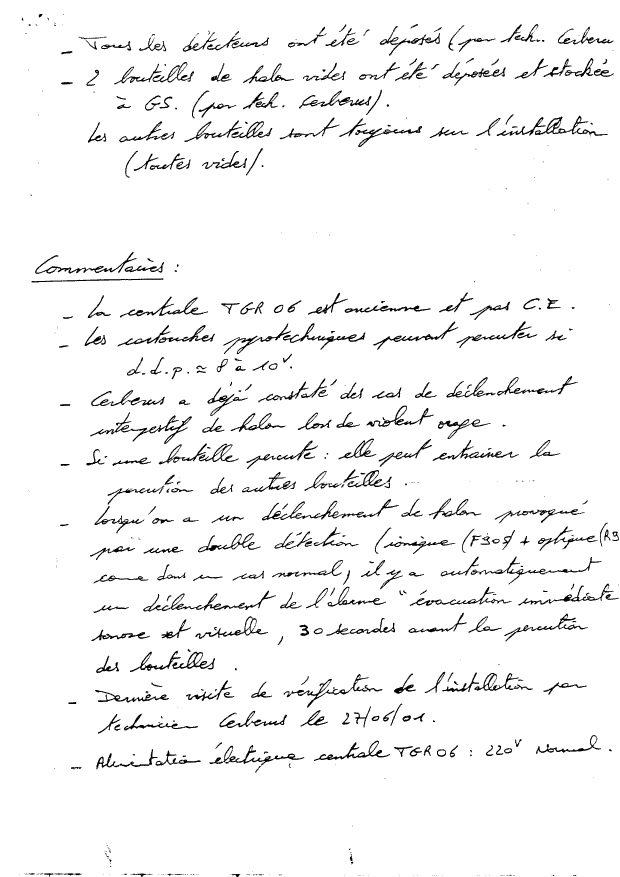 - Tous les détecteurs ont été déposés (par tech. Cerberu
- 2 bouteilles de halon vides ont été déposées et stockée
à GS. (par tech. Cerberus).
Les autres bouteilles sont toujours sur l'installation
(toutes vides).
Commentaires :
- La centrale TGR 06 est ancienne et pas C.E.
- Les cartouches pyrotechniques peuvent percuter si
d.d.p. ≃ 8 à 10V.
- Cerberus a déjà constaté des cas de déclenchement
intempestif de halon lors de violent orage.
- Si une bouteille percute : elle peut entraîner la
percution des autres bouteilles.
- Lorsqu'on a un déclenchement de halon provoqué
par une double détection (ionique (F305) + optique (R3
comme dans un cas normal, il y a automatiquement
un déclenchement de l'alarme "évacuation immédiate
sonore et visuelle, 30 secondes avant la percution
des bouteilles.
- Dernière visite de vérification de l'installation par
technicien Cerberus le 27/06/01.
- Alimentation électrique centrale TGR 06 : 220V Normal.